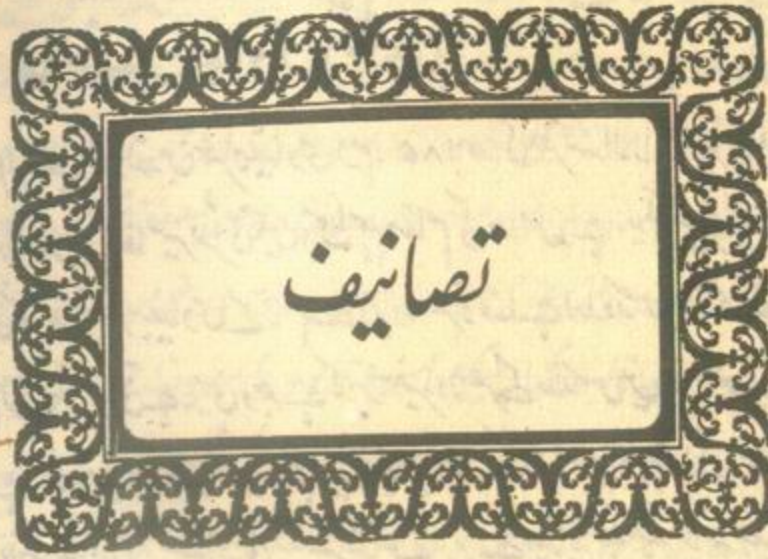 تصانیف